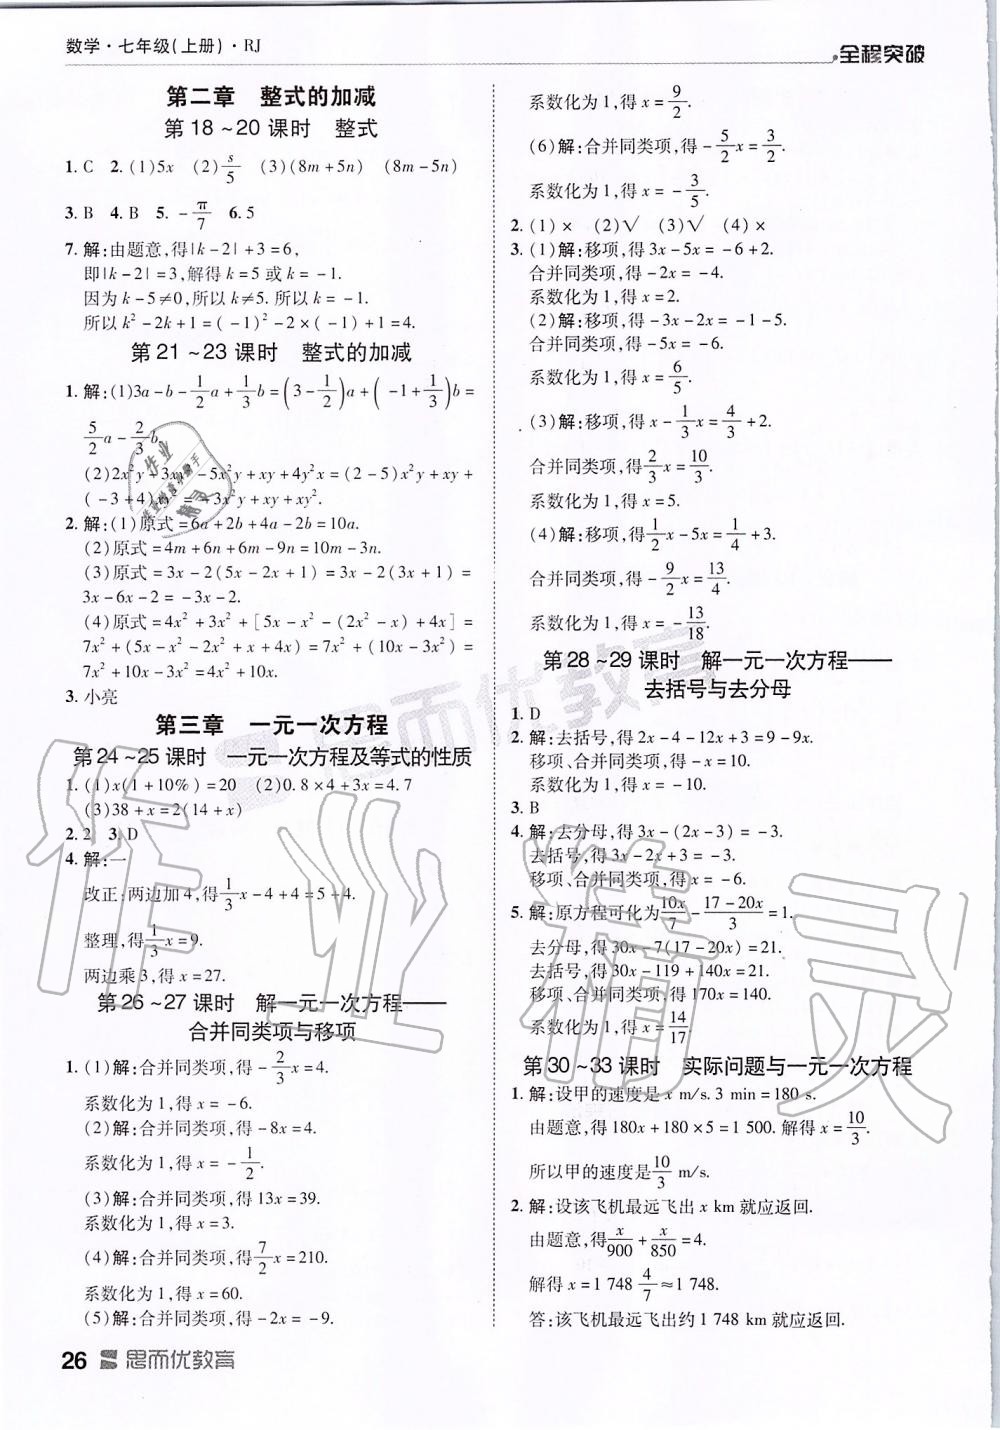 数学·七年级(上册)·RJ
全程突破
第二章 整式的加减
第18~20课时 整式
1. C 2. (1)5x (2)s/5 (3)(8m+5n) (8m-5n)
3. B 4. B 5. -π/7 6. 5
7. 解:由题意,得|k-2|+3=6,
即|k-2|=3,解得k=5或k=-1.
因为k-5≠0,所以k≠5.所以k=-1.
所以k²-2k+1=(-1)²-2×(-1)+1=4.
第21~23课时 整式的加减
1. 解:(1)3a-b-1/2a+1/3b=(3-1/2)a+(-1+1/3)b=
5/2a-2/3b.
(2)2x²y-3xy-5x²y+xy+4y²x=(2-5)x²y+xy+
(-3+4)xy²=-3x²y+xy+xy².
2. 解:(1)原式=6a+2b+4a-2b=10a.
(2)原式=4m+6n+6m-9n=10m-3n.
(3)原式=3x-2(5x-2x+1)=3x-2(3x+1)=
3x-6x-2=-3x-2.
(4)原式=4x²+3x²+[5x-x²-(2x²-x)+4x]=
7x²+(5x-x²-2x²+x+4x)=7x²+(10x-3x²)=
7x²+10x-3x²=4x²+10x.
3. 小亮
第三章 一元一次方程
第24~25课时 一元一次方程及等式的性质
1. (1)x(1+10%)=20 (2)0.8×4+3x=4.7
(3)38+x=2(14+x)
2. 2 3. D
4. 解:一
改正:两边加4,得1/3x-4+4=5+4.
整理,得1/3x=9.
两边乘3,得x=27.
第26~27课时 解一元一次方程——
合并同类项与移项
1. (1)解:合并同类项,得-2/3x=4.
系数化为1,得x=-6.
(2)解:合并同类项,得-8x=4.
系数化为1,得x=-1/2.
(3)解:合并同类项,得13x=39.
系数化为1,得x=3.
(4)解:合并同类项,得7/2x=210.
系数化为1,得x=60.
(5)解:合并同类项,得-2x=-9.
系数化为1,得x=9/2.
(6)解:合并同类项,得-5/2x=3/2.
系数化为1,得x=-3/5.
2. (1)× (2)√ (3)√ (4)×
3. (1)解:移项,得3x-5x=-6+2.
合并同类项,得-2x=-4.
系数化为1,得x=2.
(2)解:移项,得-3x-2x=-1-5.
合并同类项,得-5x=-6.
系数化为1,得x=6/5.
(3)解:移项,得x-1/3x=4/3+2.
合并同类项,得2/3x=10/3.
系数化为1,得x=5.
(4)解:移项,得1/2x-5x=1/4+3.
合并同类项,得-9/2x=13/4.
系数化为1,得x=-13/18.
第28~29课时 解一元一次方程——
去括号与去分母
1. D
2. 解:去括号,得2x-4-12x+3=9-9x.
移项、合并同类项,得-x=10.
系数化为1,得x=-10.
3. B
4. 解:去分母,得3x-(2x-3)=-3.
去括号,得3x-2x+3=-3.
移项、合并同类项,得x=-6.
5. 解:原方程可化为10x/7-(17-20x)/3=1.
去分母,得30x-7(17-20x)=21.
去括号,得30x-119+140x=21.
移项、合并同类项,得170x=140.
系数化为1,得x=14/17.
第30~33课时 实际问题与一元一次方程
1. 解:设甲的速度是x m/s. 3 min=180 s.
由题意,得180x+180×5=1 500. 解得x=10/3.
所以甲的速度是10/3 m/s.
2. 解:设该飞机最远飞出x km就应返回.
由题意,得x/900+x/850=4.
解得x=1 748 4/7≈1 748.
答:该飞机最远飞出约1 748 km就应返回.
26 思而优教育
思而优教育
作业精灵